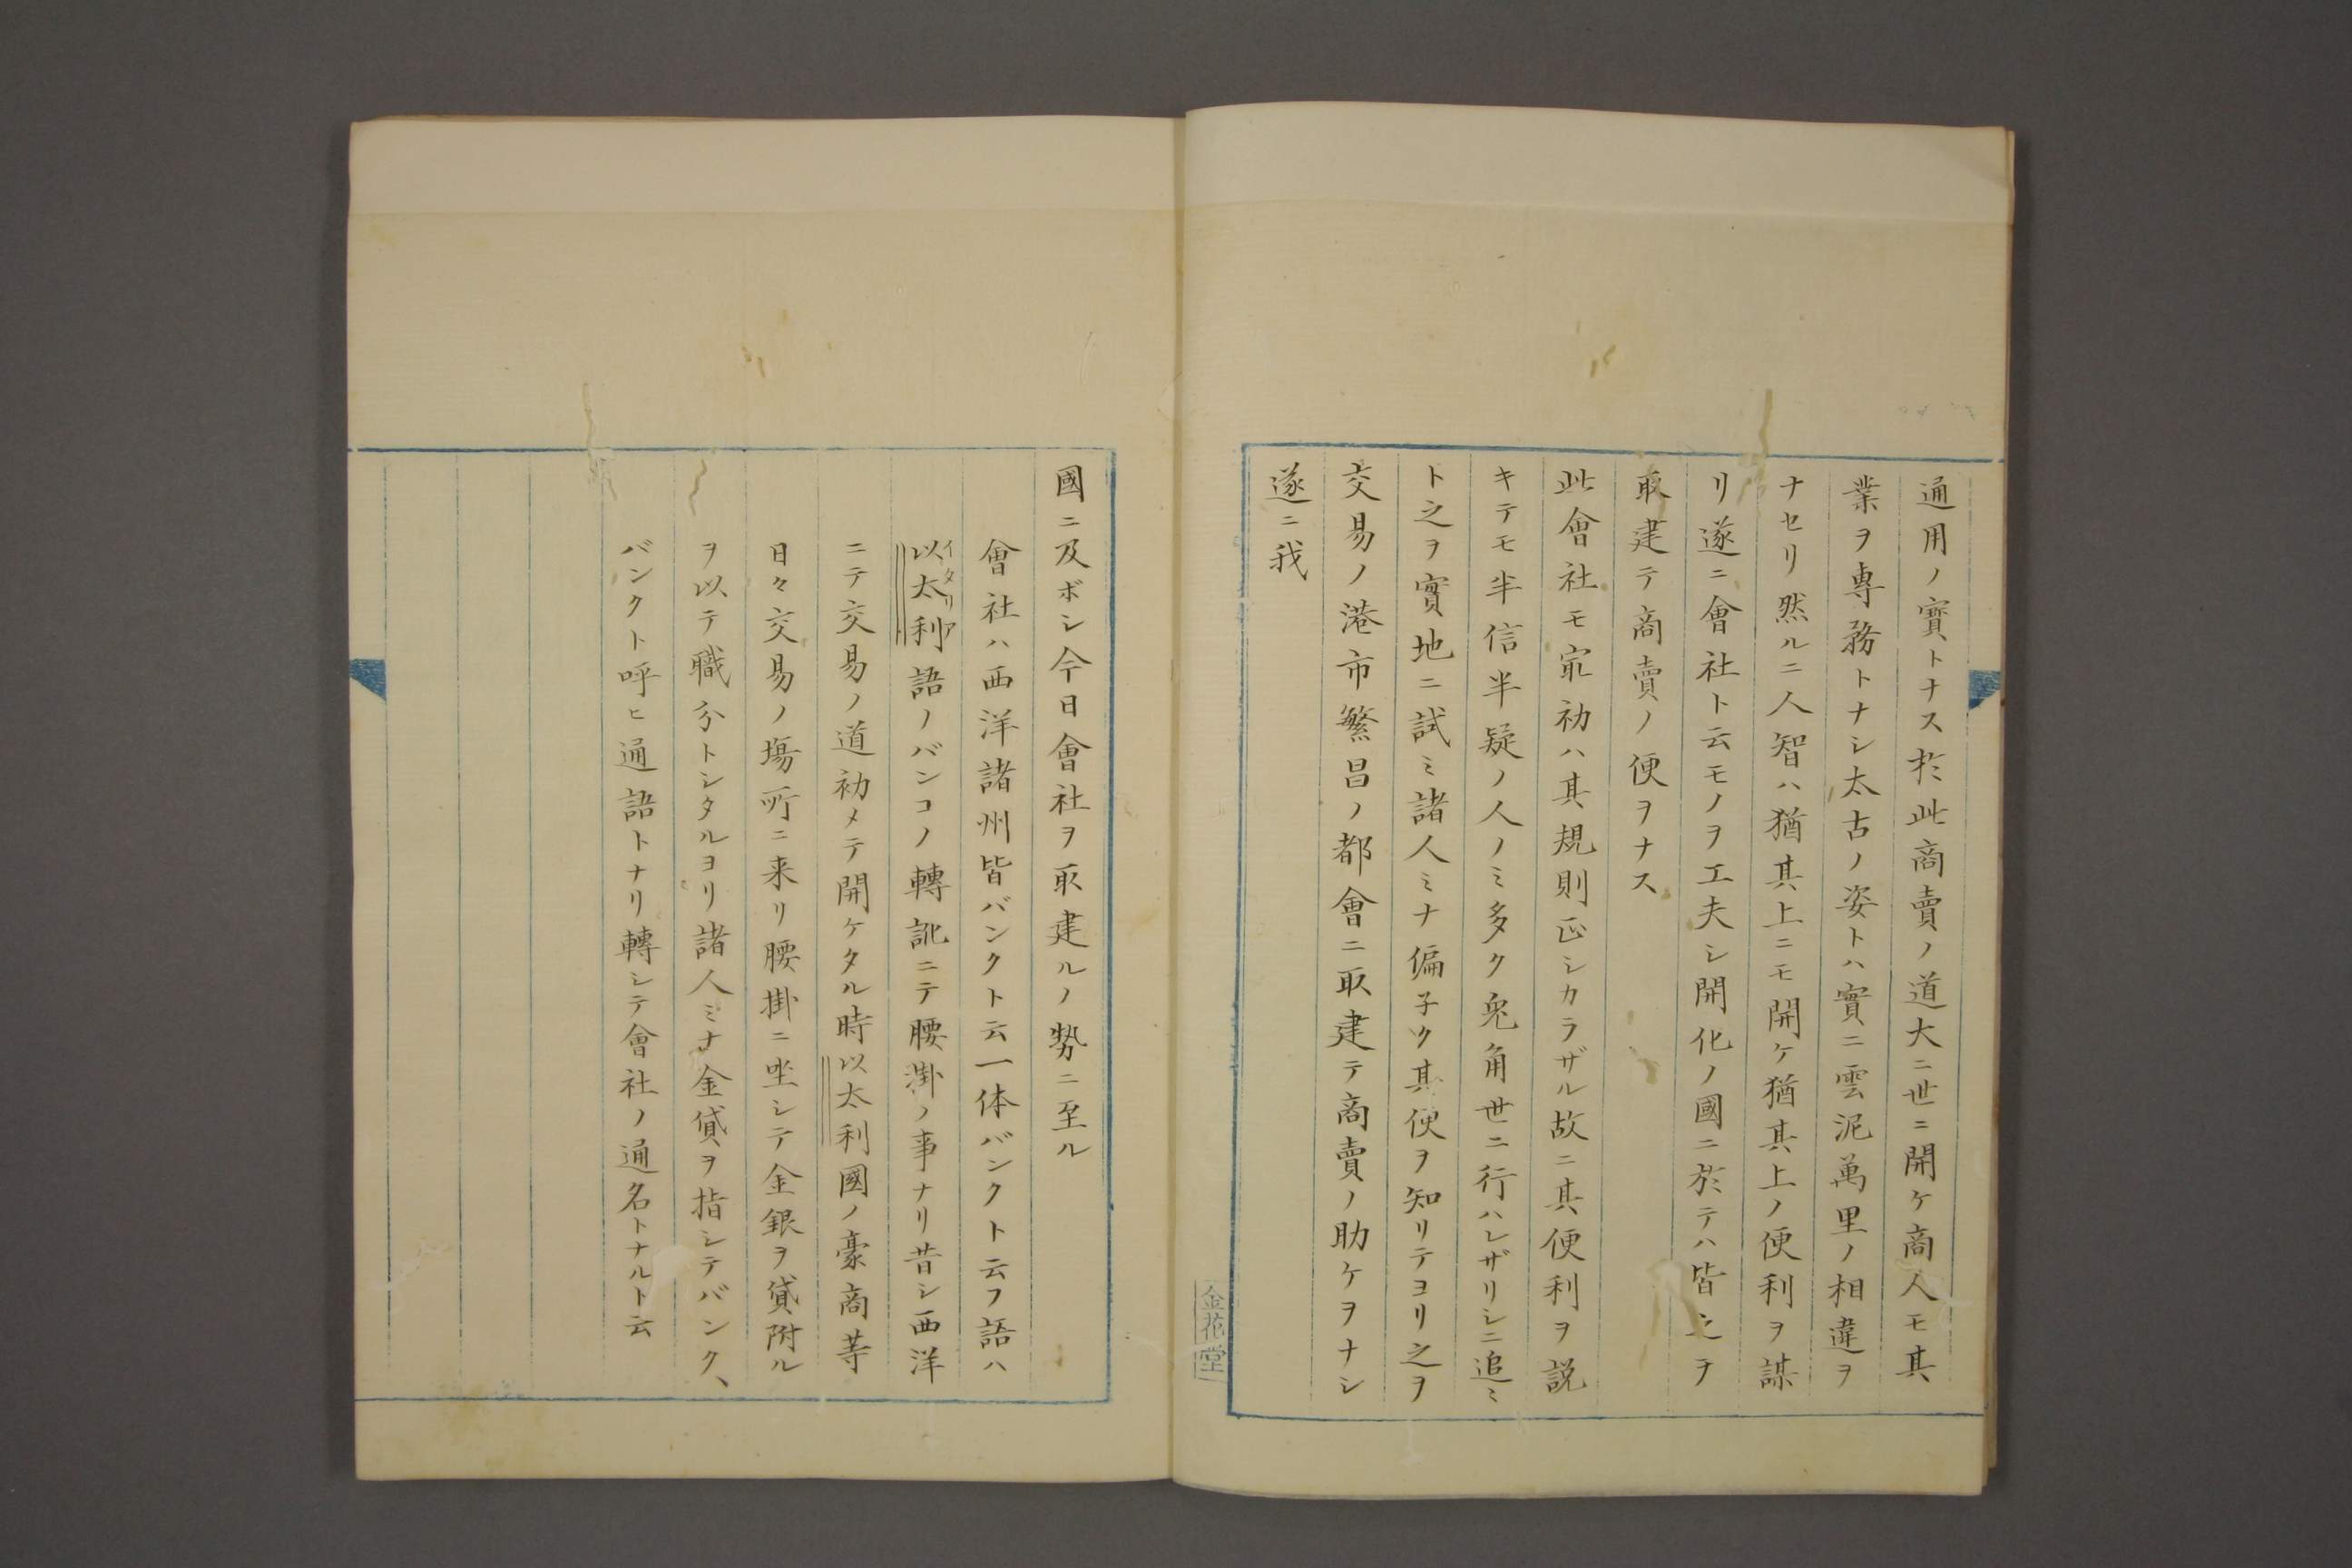 通用ノ寳トナス於此商賣ノ道大ニ世ニ開ケ商人モ其
業ヲ專務トナシ太古ノ姿トハ實ニ雲泥萬里ノ相違ヲ
ナセリ然ルニ人智ハ猶其上ニモ開ケ猶其上ノ便利ヲ謀
リ遂ニ會社ト云モノヲ工夫シ開化ノ國ニ於テハ皆之ヲ
取建テ商賣ノ便ヲナス
此會社モ㝡初ハ其規則正シカラザル故ニ其便利ヲ説
キテモ半信半疑ノ人ノミ多ク兎角世ニ行ハレザリシニ追ミ
ト之ヲ實地ニ試ミ諸人ミナ偏子ク其便ヲ知リテヨリ之ヲ
交易ノ港市繁昌ノ都會ニ取建テ商賣ノ助ケヲナシ
遂ニ我
金花堂
國ニ及ボシ今日會社ヲ取建ルノ勢ニ至ル
會社ハ西洋諸州皆バンクト云一体バンクト云フ語ハ
以太利イタリア語ノバンコノ轉訛ニテ腰掛ノ事ナリ昔シ西洋
ニテ交易ノ道初メテ開ケタル時以太利國ノ豪商等
日々交易ノ塲所ニ来リ腰掛ニ坐シテ金銀ヲ貸附ル
ヲ以テ職分トシタルヨリ諸人ミナ金貸ヲ指シテバンク、
バンクト呼ヒ通語トナリ轉シテ會社ノ通名トナルト云